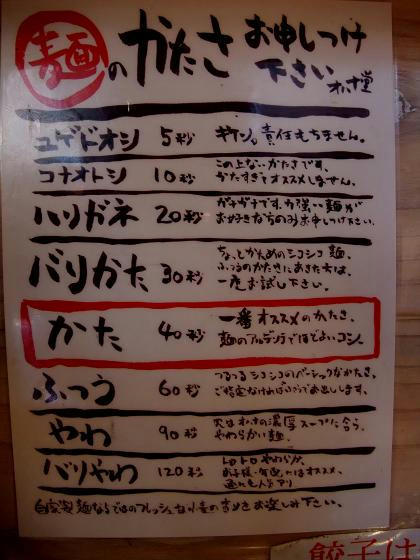 麺のかたさ お申しつけ
下さい オハナ堂
ユゲドオシ 5秒 キケン。責任もちません。
コナオトシ 10秒 この上ないかたさです。
かたすぎてオススメしません。
ハリガネ 20秒 ガチガチです。力強い麺が
お好きな方のみお申しつけ下さい。
バリかた 30秒 ちょっとかためのシコシコ麺、
ふつうのかたさにあきた方は、
一度お試し下さい。
かた 40秒 一番オススメのかたさ。
麺のアルデンテでほどよいコシ。
ふつう 60秒 つるつるシコシコのベーシックなかたさ。
ご指定なければふつうでお出しします。
やわ 90秒 濃厚スープに合う、
やわらかい麺。
バリやわ 120秒 トロトロやわらか。
オススメ。
自家製麺ならではのフレッシュな小麦の
お楽しみ下さい。
餃子は